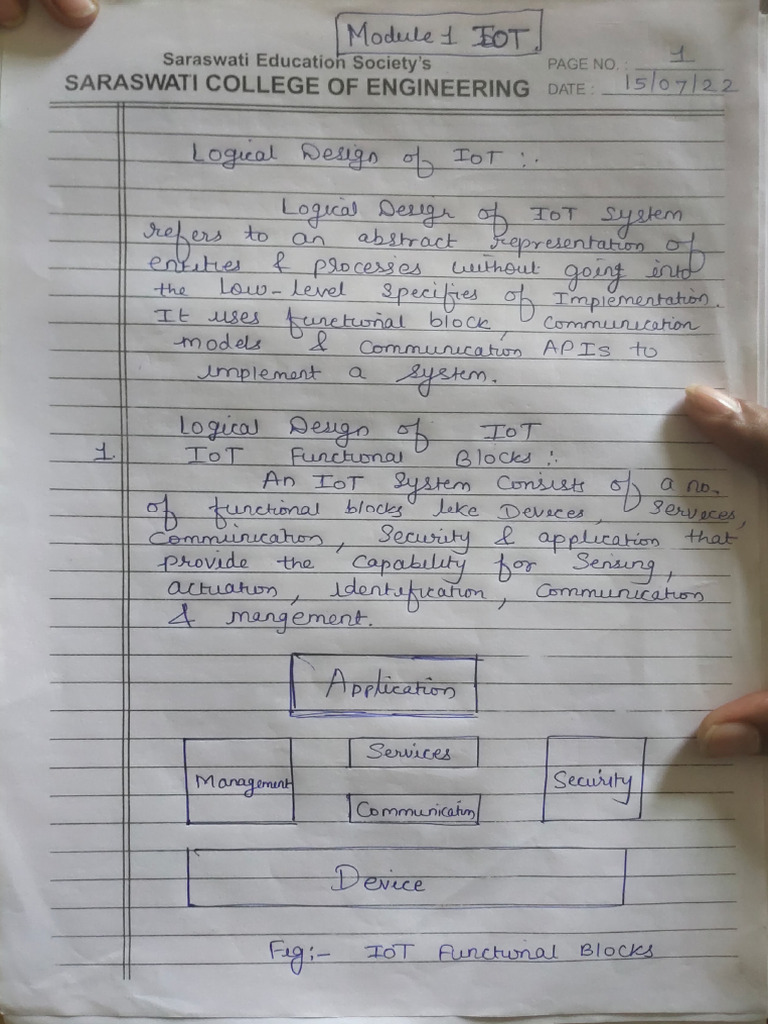 Module 1 IOT.
Saraswati Education Society's
PAGE NO. : 1
SARASWATI COLLEGE OF ENGINEERING
DATE : 15/07/22
Logical Design of IoT :.
Logical Design of IoT System
refers to an abstract representation of
entities & processes without going into
the low-level specifies of Implementation.
It uses functional block, communication
models & communication APIs to
implement a system.
Logical Design of IoT
1. IoT Functional Blocks :.
An IoT System Consists of a no.
of functional blocks like Devices, Services,
Communication, Security & application that
provide the capability for Sensing,
actuation, identification, communication
& mangement.
Application
Services
Management
Security
Communication
Device
Fig:- IoT Functional Blocks